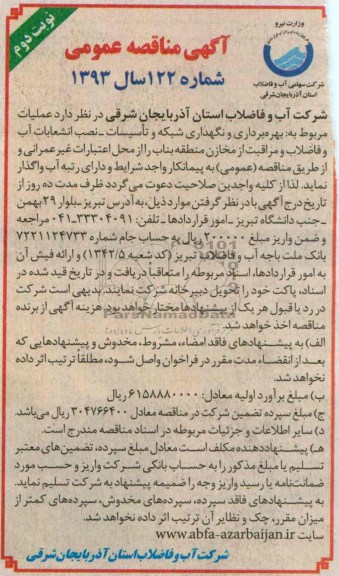 نوبت دوم
وزارت نیرو
شرکت سهامی آب و فاضلاب
استان آذربایجان شرقی
آگهی مناقصه عمومی
شماره ۱۲۲ سال ۱۳۹۳
شرکت آب و فاضلاب استان آذربایجان شرقی در نظر دارد عملیات
مربوط به: بهره‌برداری و نگهداری شبکه و تأسیسات ـ نصب انشعابات آب
و فاضلاب و مراقبت از مخازن منطقه بناب را از محل اعتبارات غیر عمرانی و
از طریق مناقصه (عمومی) به پیمانکار واجد شرایط و دارای رتبه آب واگذار
نماید. لذا از کلیه واجدین صلاحیت دعوت می‌گردد ظرف مدت ده روز از
تاریخ درج آگهی با در نظر گرفتن موارد ذیل، به آدرس تبریز ـ بلوار ۲۹ بهمن
ـ جنب دانشگاه تبریز ـ امور قراردادها ـ تلفن: ۳۳۳۰۴۰۹۱-۰۴۱ مراجعه
و ضمن واریز مبلغ ۲۰۰۰۰۰ ریال به حساب جام شماره ۷۲۲۱۱۲۴۷۳۳
بانک ملت باجه آب و فاضلاب تبریز (کد شعبه ۱۳۴۲/۵) و ارائه فیش آن
به امور قراردادها، اسناد مربوطه را متعاقباً دریافت و در تاریخ قید شده در
اسناد، پاکت خود را تحویل دبیرخانه شرکت نمایند. بدیهی است شرکت
در رد یا قبول هر یک از پیشنهادها مختار خواهد بود هزینه آگهی از برنده
مناقصه اخذ خواهد شد.
الف) به پیشنهادهای فاقد امضاء، مشروط، مخدوش و پیشنهادهایی که
بعد از انقضاء مدت مقرر در فراخوان واصل شود، مطلقاً ترتیب اثر داده
نخواهد شد.
ب) مبلغ برآورد اولیه معادل: ۶۱۵۸۸۸۰۰۰۰ ریال
ج) مبلغ سپرده تضمین شرکت در مناقصه معادل ۳۰۴۷۶۶۴۰۰ ریال می‌باشد.
د) سایر اطلاعات و جزئیات مربوطه در اسناد مناقصه مندرج است.
هـ) پیشنهاددهنده مکلف است معادل مبلغ سپرده، تضمین‌های معتبر
تسلیم یا مبلغ مذکور را به حساب بانکی شرکت واریز و حسب مورد
ضمانت‌نامه یا رسید واریز وجه را ضمیمه پیشنهاد به شرکت تسلیم نماید.
به پیشنهادهای فاقد سپرده، سپرده‌های مخدوش، سپرده‌های کمتر از
میزان مقرر، چک و نظایر آن ترتیب اثر داده نخواهد شد.
سایت www.abfa-azarbaijan.ir
شرکت آب و فاضلاب استان آذربایجان شرقی